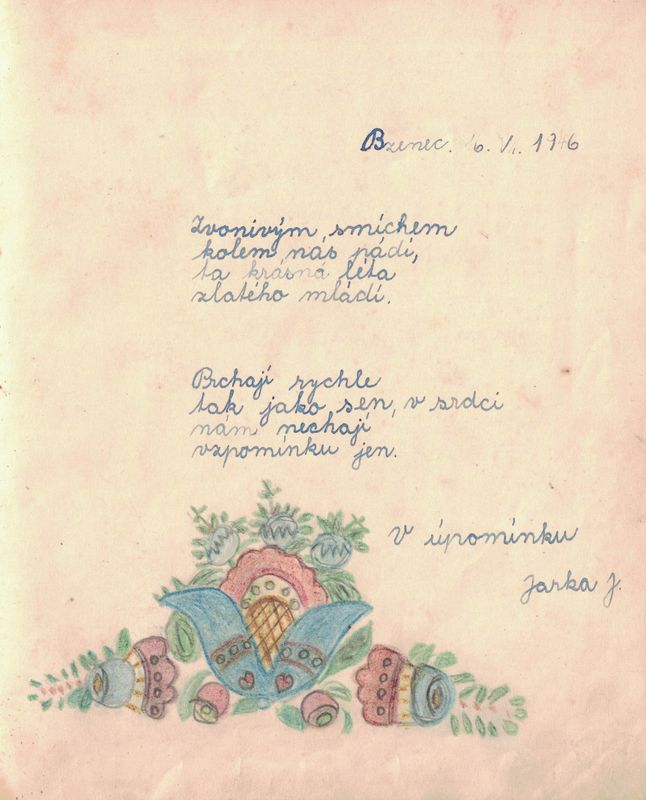 Bzenec. 16. VI. 1946
Zvonivým smíchem
kolem nás pádí,
ta krásná léta
zlatého mládí.
Prchají rychle
tak jako sen, v srdci
nám nechají
vzpomínku jen.
V úpomínku
Jarka J.